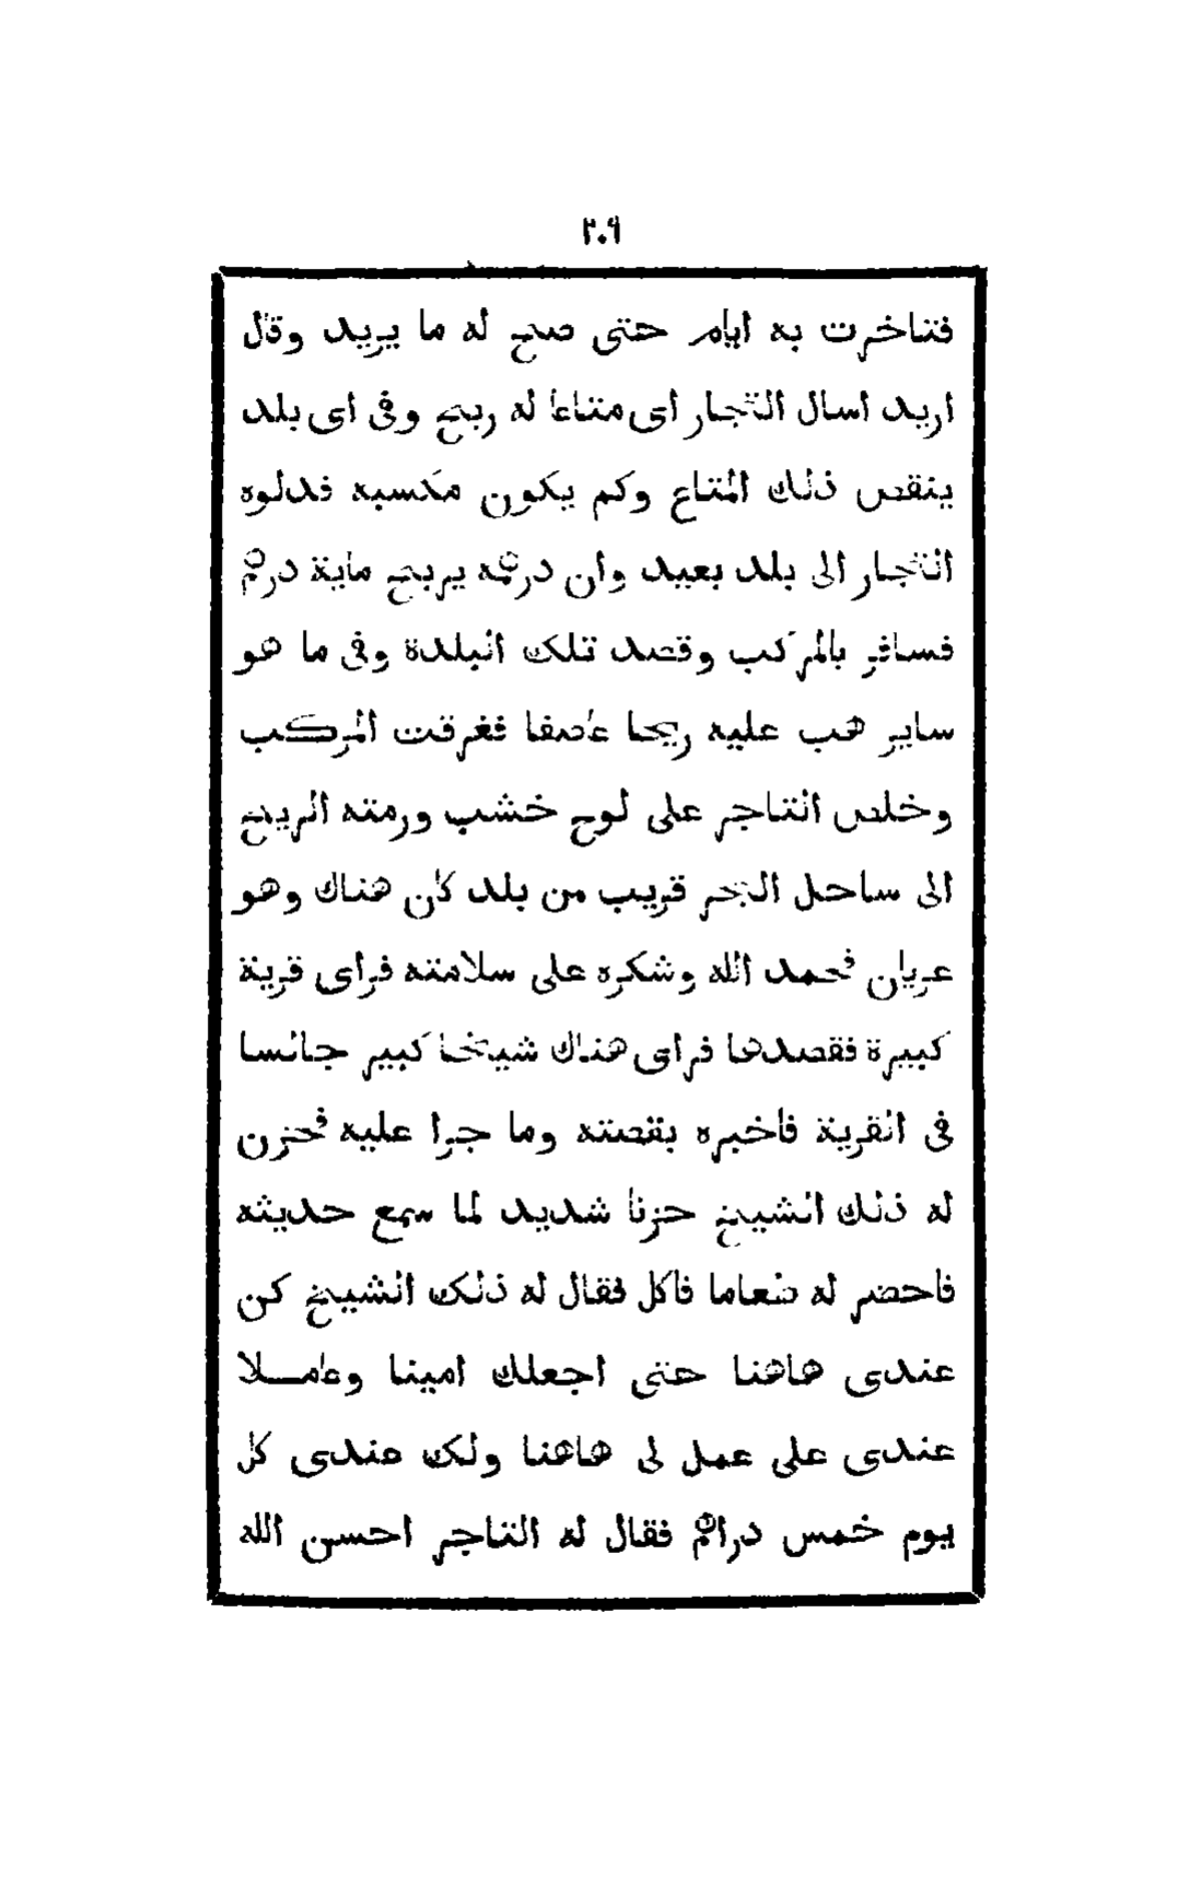 ٢٠٩
فتناخرت به ايام حتى صح له ما يريد وقال
اريد اسال التجار اى متاعا له ربح وفى اى بلد
ينقص ذلك المتاع وكم يكون مكسبه فدلوه
التجار الى بلد بعيد وان درهمه يربح ماية درهم
فسافر بالمركب وقصد تلك البلدة وفى ما هو
ساير هب عليه ريحا عاصفا فغرقت المركب
وخلص التاجر على لوح خشب ورمته الريح
الى ساحل البحر قريب من بلد كان هناك وهو
عريان فحمد الله وشكره على سلامته فراى قرية
كبيرة فقصدها فراى هناك شيخا كبير جالسا
فى القرية فاخبره بقصته وما جرا عليه فحزن
له ذلك الشيخ حزنا شديد لما سمع حديثه
فاحضر له طعاما فاكل فقال له ذلك الشيخ كن
عندى هاهنا حتى اجعلك امينا وعامـلا
عندى على عمل لى هاهنا ولك عندى كل
يوم خمس دراهم فقال له التاجر احسن الله